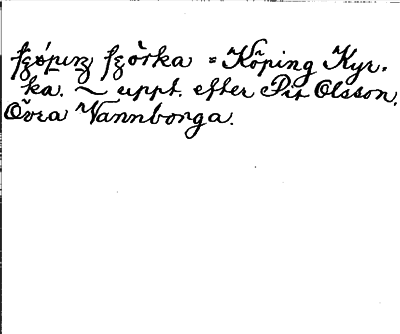 ʃʒǿpɩnʒ ʃʒòrka = Köping Kyr-
ka. ~ uppt. efter Pit Olsson,
Övra Vannborga.